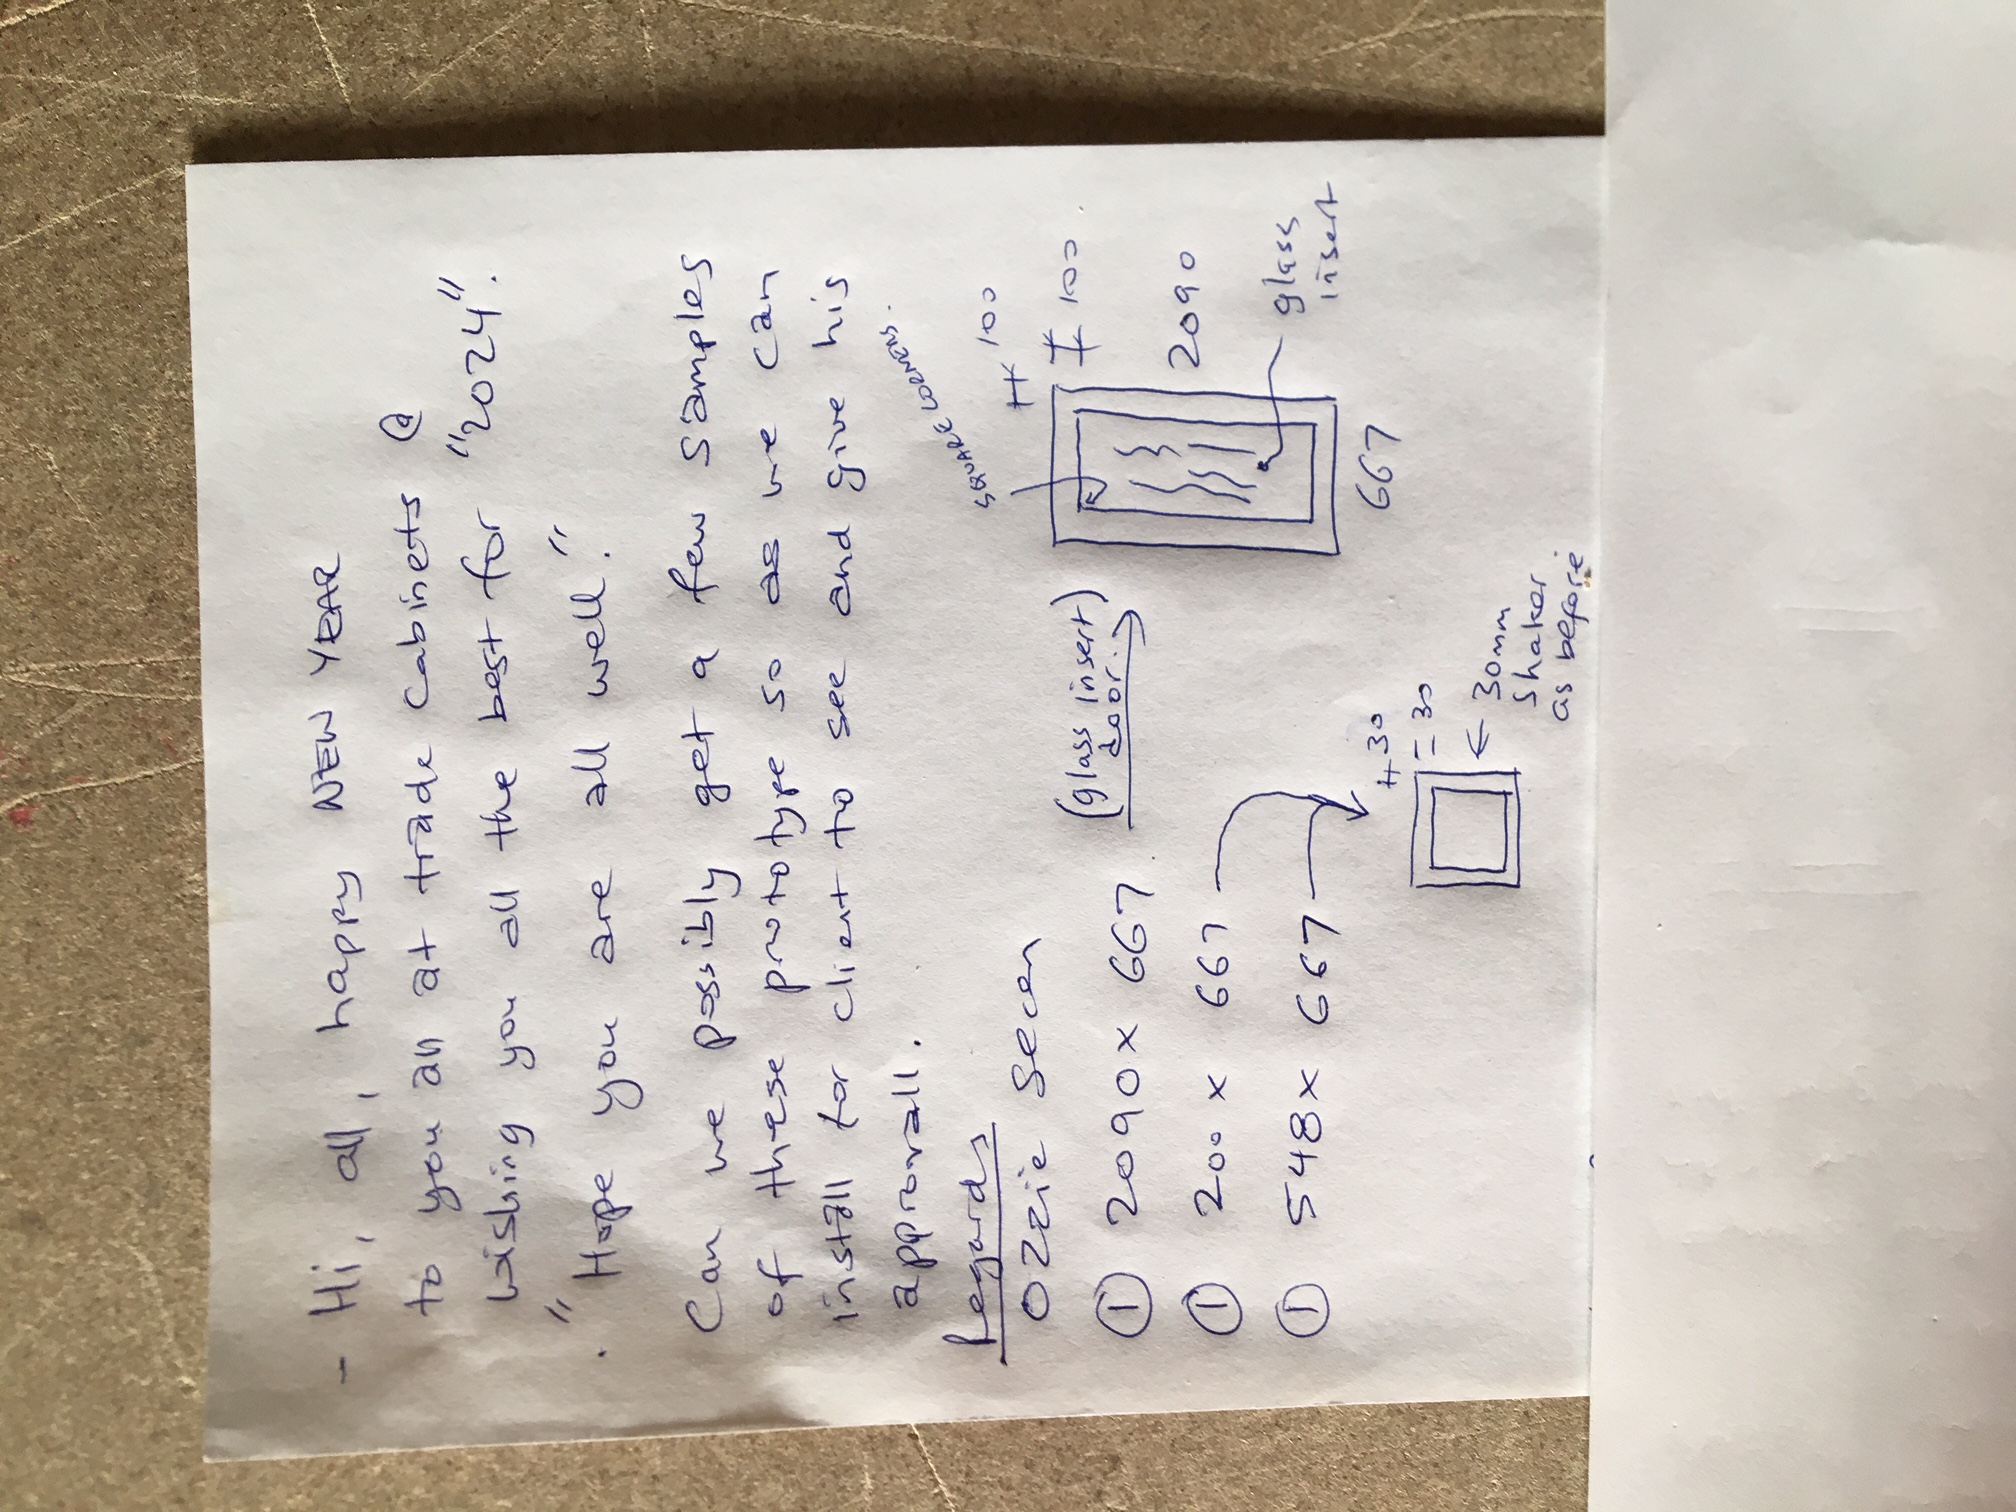 - Hi, all, happy NEW YEAR
to you all at trade cabinets @
wishing you all the best for "2024".
. "Hope you are all well."
Can we possibly get a few samples
of these prototype so as we can
install for client to see and give his
approvall.
Regards
Ozzie Secen
① 2090 x 667 (glass insert)
door.
① 200 x 667
① 548 x 667
SQUARE CORNERS.
100
100
2090
glass
insert
667
30
30
← 30mm
shaker
as before